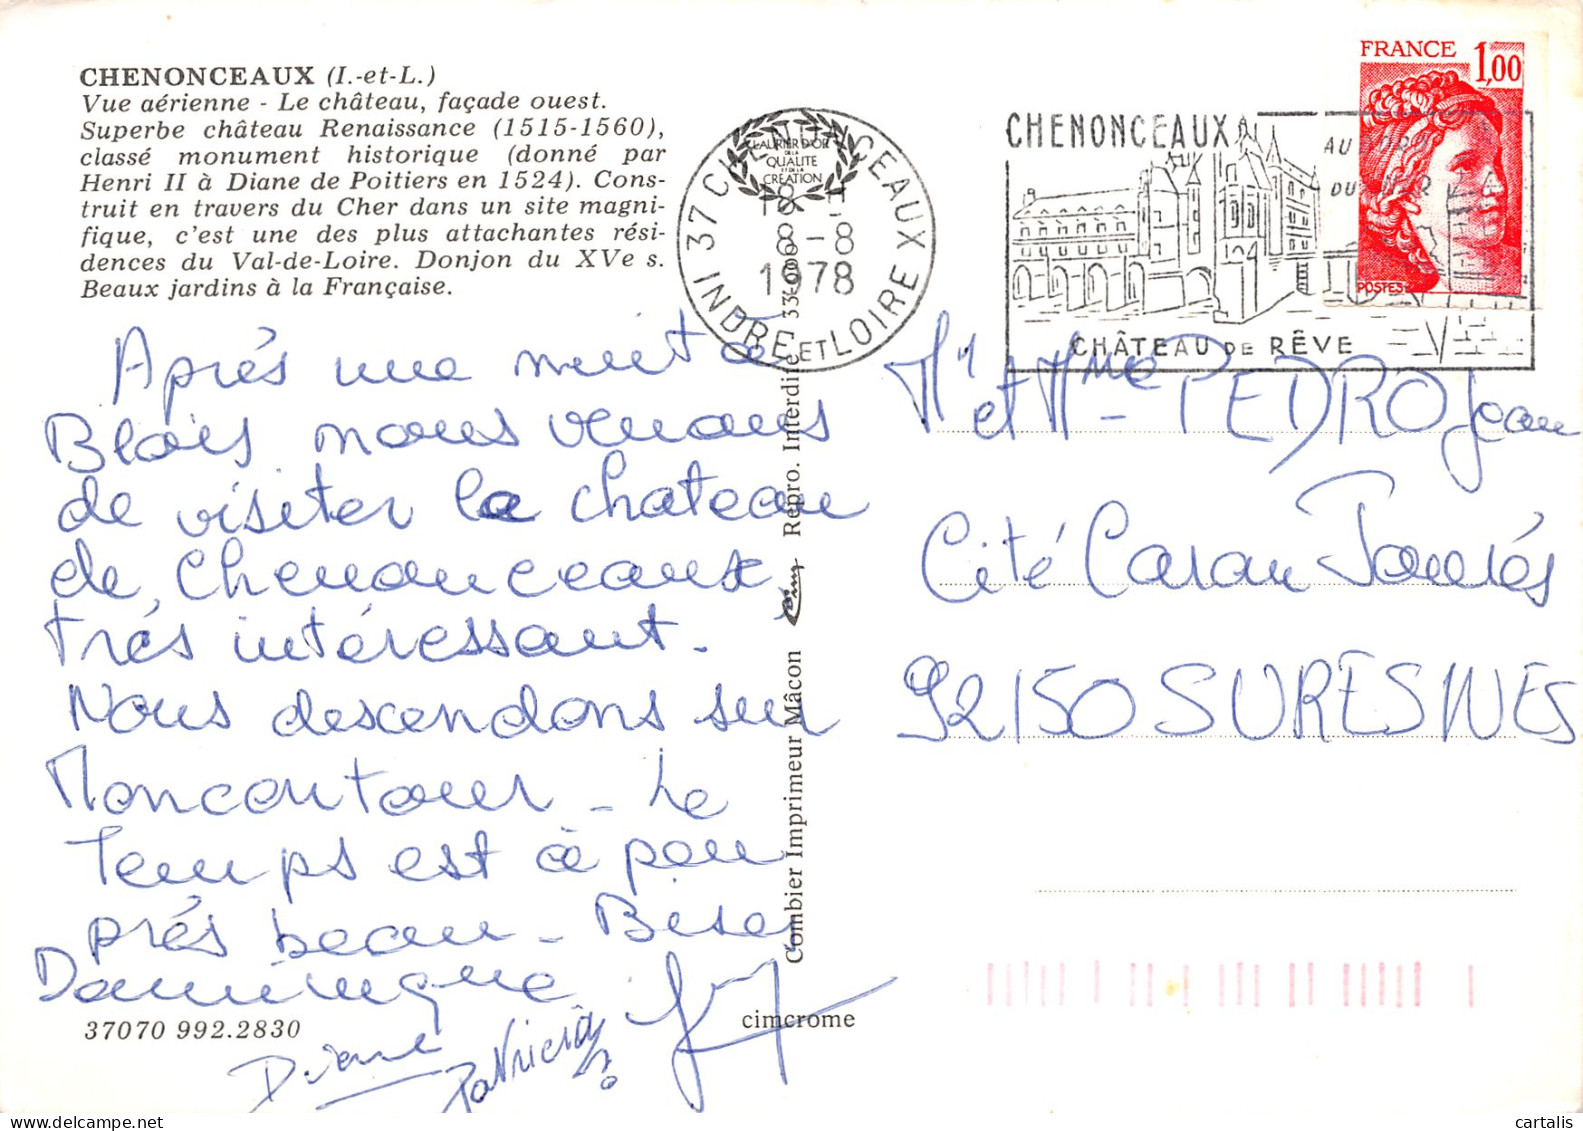 CHENONCEAUX (I.-et-L.)
Vue aérienne - Le château, façade ouest.
Superbe château Renaissance (1515-1560),
classé monument historique (donné par
Henri II à Diane de Poitiers en 1524). Cons-
truit en travers du Cher dans un site magni-
fique, c'est une des plus attachantes rési-
dences du Val-de-Loire. Donjon du XVe s.
Beaux jardins à la Française.
LAURIER D'OR
DE LA
QUALITE
ET DE LA
CREATION
37 CHENONCEAUX
8-8
1978
INDRE ET LOIRE
CHENONCEAUX
AU BORD
DU CHER
CHÂTEAU DE RÊVE
FRANCE 1,00
POSTES
Aprés une nuit à
Blois nous venons
de visiter le chateau
de Chenonceaux
trés intéressant.
Nous descendons sur
Moncontour - Le
Temps est à peu
prés beau - Bises
Dominique
Diane
Patricia
Mr et Mme PEDRO Jean
Cité Caran
92150 SURESNES
Combier Imprimeur Mâcon
Repro. Interdite
cimcrome
37070 992.2830
cartalis